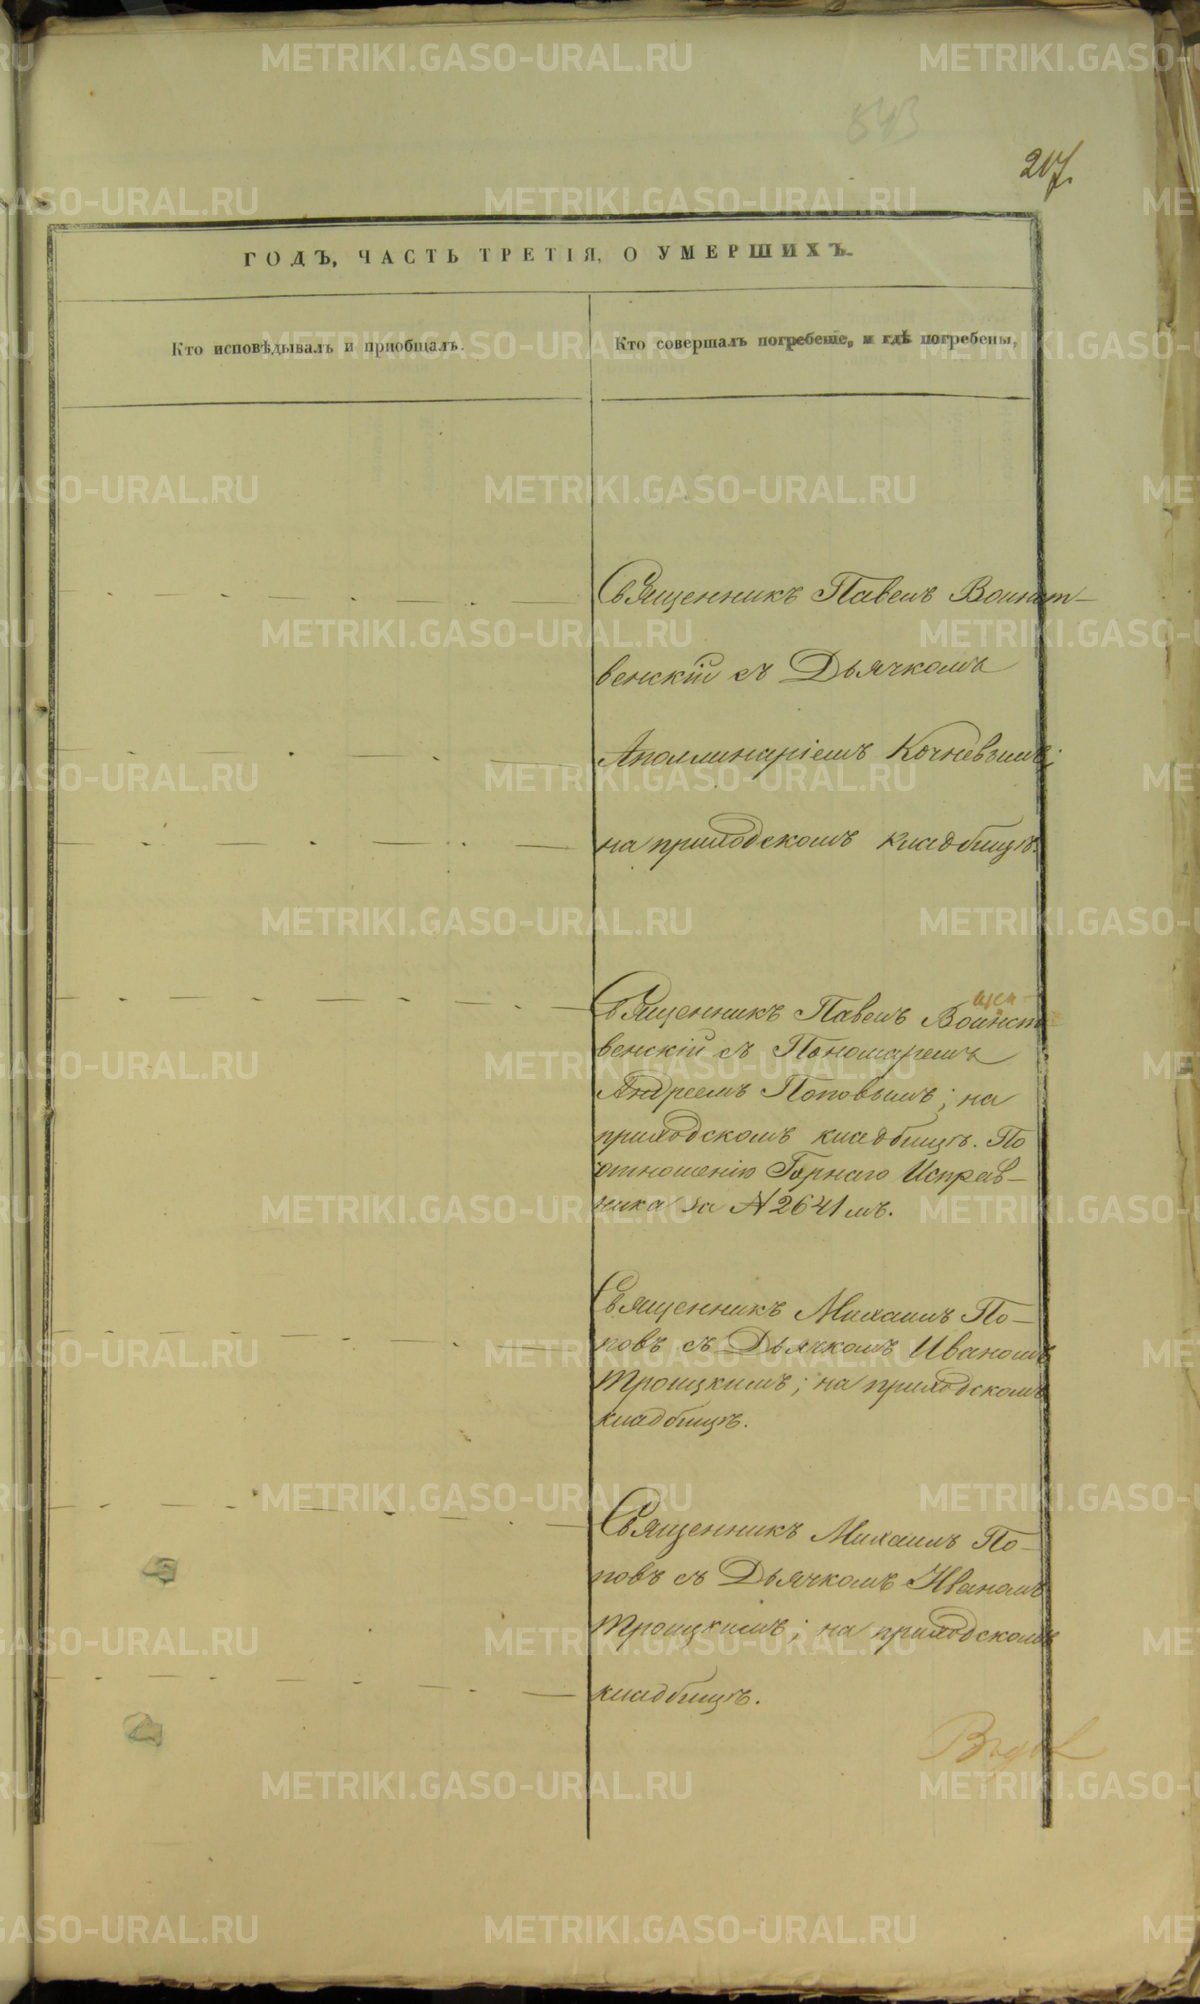 543
207.
ГОДЪ, ЧАСТЬ ТРЕТІЯ, О УМЕРШИХЪ.
Кто исповѣдывалъ и пріобщалъ.
Кто совершалъ погребеніе, и гдѣ погребены,
Священникъ Павелъ Воинст-
венскій съ Дьячкомъ
Аполлинаріемъ Кочневымъ;
на приходскомъ кладбищѣ.
Священникъ Павелъ Воинст
венскій съ Пономаремъ
Андреемъ Поповымъ; на
приходскомъ кладбищѣ. По
отношенію Горнаго Исправ-
ника за №2641мъ.
Священникъ Михаилъ По-
повъ съ Дьячкомъ Иваномъ
Троицкимъ; на приходскомъ
кладбищѣ.
Священникъ Михаилъ По-
повъ съ Дьячкомъ Иваномъ
Троицкимъ; на приходскомъ
кладбищѣ.
METRIKI.GASO-URAL.RU